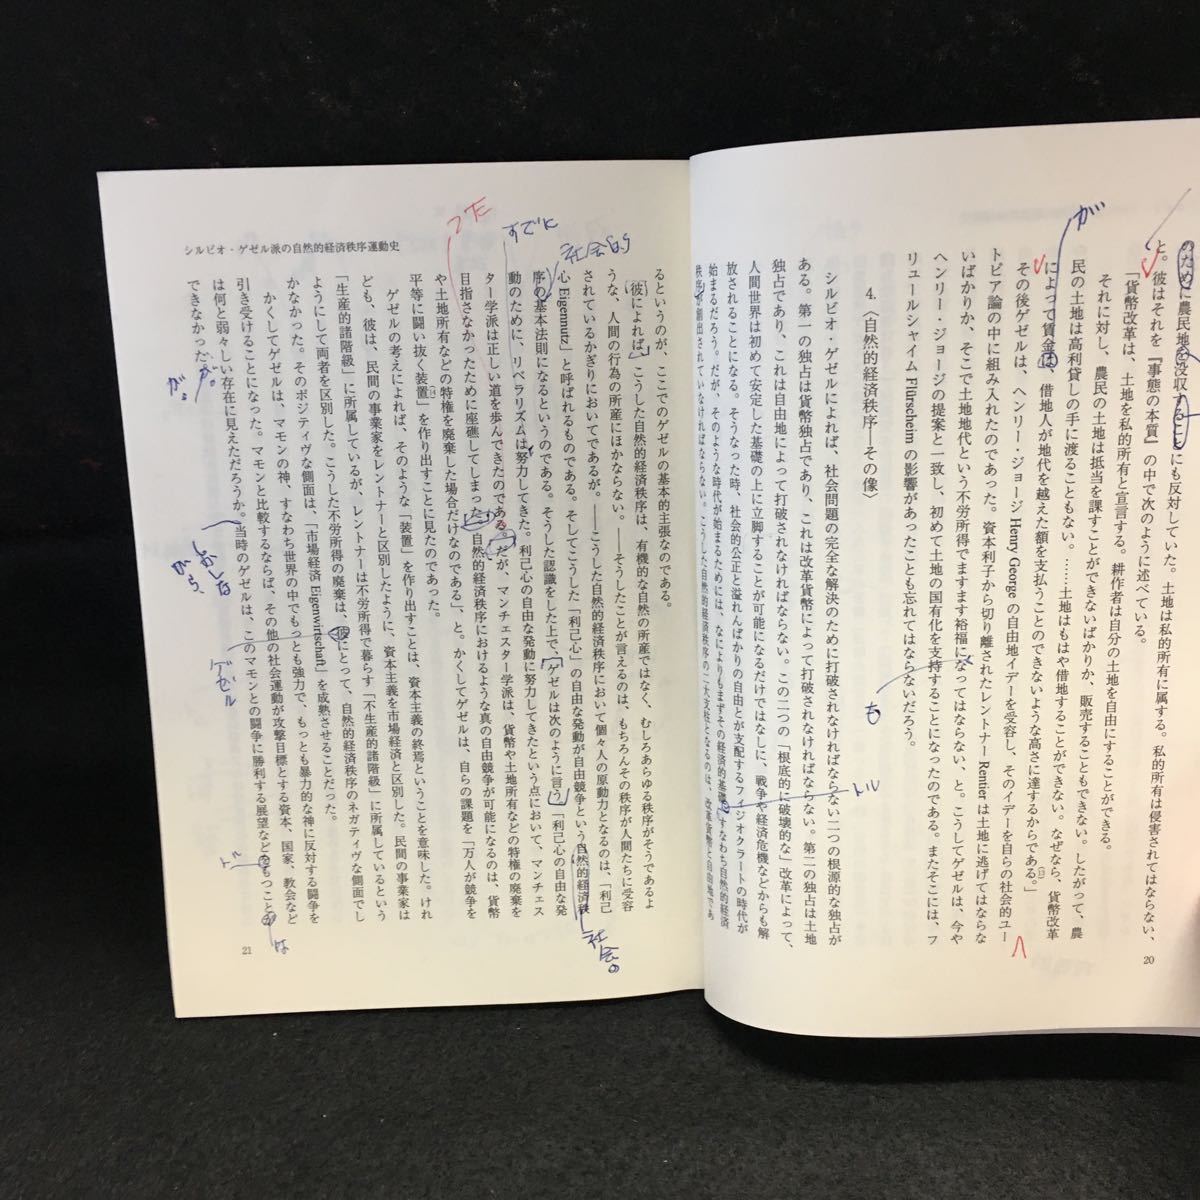 のために農民地を没収することにも反対していた。土地は私的所有に属する。私的所有は侵害されてはならない、
と。彼はそれを『事態の本質』の中で次のように述べている。
「貨幣改革は、土地を私的所有と宣言する。耕作者は自分の土地を自由にすることができる。
それに対し、農民の土地は抵当を課すことができないばかりか、販売することもできない。したがって、農
民の土地は高利貸しの手に渡ることもない。……土地はもはや借地することができない。なぜなら、貨幣改革
によって賃金は、借地人が地代を越えた額を支払うことのできないような高さに達するからである。」
その後ゲゼルは、ヘンリー・ジョージ Henry George の自由地イデーを受容し、そのイデーを自らの社会的ユー
トピア論の中に組み入れたのであった。資本利子から切り離されたレントナー Rentier は土地に逃げてはならな
いばかりか、そこで土地地代という不労所得でますます裕福になってはならない、と。こうしてゲゼルは、今や
ヘンリー・ジョージの提案と一致し、初めて土地の国有化を支持することになったのである。またそこには、フ
リュールシャイム Fürscheim の影響があったことも忘れてはならないだろう。
も
が
4.〈自然的経済秩序―その像〉
シルビオ・ゲゼルによれば、社会問題の完全な解決のために打破されなければならない二つの根源的な独占が
ある。第一の独占は貨幣独占であり、これは改革貨幣によって打破されなければならない。第二の独占は土地
独占であり、これは自由地によって打破されなければならない。この二つの「根底的に破壊的な」改革によって、
人間世界は初めて安定した基礎の上に立脚することが可能になるだけではなしに、戦争や経済危機などからも解
放されることになる。そうなった時、社会的公正と溢れんばかりの自由とが支配するフィジオクラートの時代が
始まるだろう。だが、そのような時代が始まるためには、なによりもまずその経済的基礎、すなわち自然的経済
秩序が創出されていなければならない。こうした自然的経済秩序の二大支柱となるのは、改革貨幣と自由地であ
トル
20
るというのが、ここでのゲゼルの基本的主張なのである。
彼によれば、こうした自然的経済秩序は、有機的な自然の所産ではなく、むしろあらゆる秩序がそうであるよ
うな、人間の行為の所産にほかならない。――そうしたことが言えるのは、もちろんその秩序が人間たちに受容
されているかぎりにおいてであるが。――こうした自然的経済秩序において個々人の原動力となるのは、「利己
心 Eigennutz」と呼ばれるものである。そしてこうした「利己心」の自由な発動が自由競争という自然的経済秩
序の基本法則になるというのである。そうした認識をした上で、ゲゼルは次のように言う。「利己心の自由な発
動のために、リベラリズムは努力してきた。利己心の自由な発動に努力してきたという点において、マンチェス
ター学派は正しい道を歩んできたのである。だが、マンチェスター学派は、貨幣や土地所有などの特権の廃棄を
目指さなかったために座礁してしまった。自然的経済秩序におけるような真の自由競争が可能になるのは、貨幣
や土地所有などの特権を廃棄した場合だけなのである」、と。かくしてゲゼルは、自らの課題を「万人が競争を
平等に闘い抜く装置」を作り出すことに見たのであった。
ゲゼルの考えによれば、そのような「装置」を作り出すことは、資本主義の終焉ということを意味した。けれ
ども、彼は、民間の事業家をレントナーと区別したように、資本主義を市場経済と区別した。民間の事業家は
「生産的諸階級」に所属しているが、レントナーは不労所得で暮らす「不生産的諸階級」に所属しているという
ようにして両者を区別した。こうした不労所得の廃棄は、彼にとって、自然的経済秩序のネガティヴな側面でし
かなかった。そのポジティヴな側面は、「市場経済 Eigenwirtschaft」を成熟させることだった。
かくしてゲゼルは、マモンの神、すなわち世界の中でもっとも強力で、もっとも暴力的な神に反対する闘争を
引き受けることになった。マモンと比較するならば、その他の社会運動が攻撃目標とする資本、国家、教会など
は何と弱々しい存在に見えただろうか。当時のゲゼルは、このマモンとの闘争に勝利する展望などをもつことが
できなかった。
シルビオ・ゲゼル派の自然的経済秩序運動史
21
社会の
すでに
った
しかしな
がら、
ゲゼル
が。
トル
は